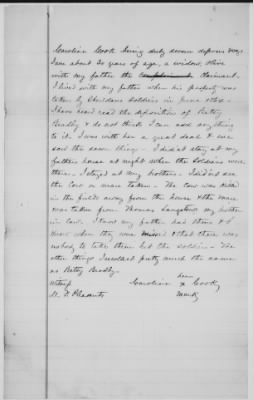 Caroline Cook being duly sworn deposes & says
I am about 30 years of age, a widow, & live
with my father the claimant.
I lived with my father when his property was
taken by Sheridans soldiers in June 1864.
I have heard read the deposition of Betsy
Bradly & do not think I can add anything
to it. I was with her a great deal & we
saw the same things. I did not stay at my
fathers house at night when the soldiers were
there. I stayed at my brothers. I did not see
the Cow or mare taken. The cow was killed
in the field away from the house & the mare
was taken from Thomas Langston's my brother
in law. I know my father had them & I
know when they were missed & that there was
nobody to take them but the soldiers. The
other things I recollect pretty much the same
as Betsy Bradly.
Caroline her x mark Cook
Witness
Pleasants